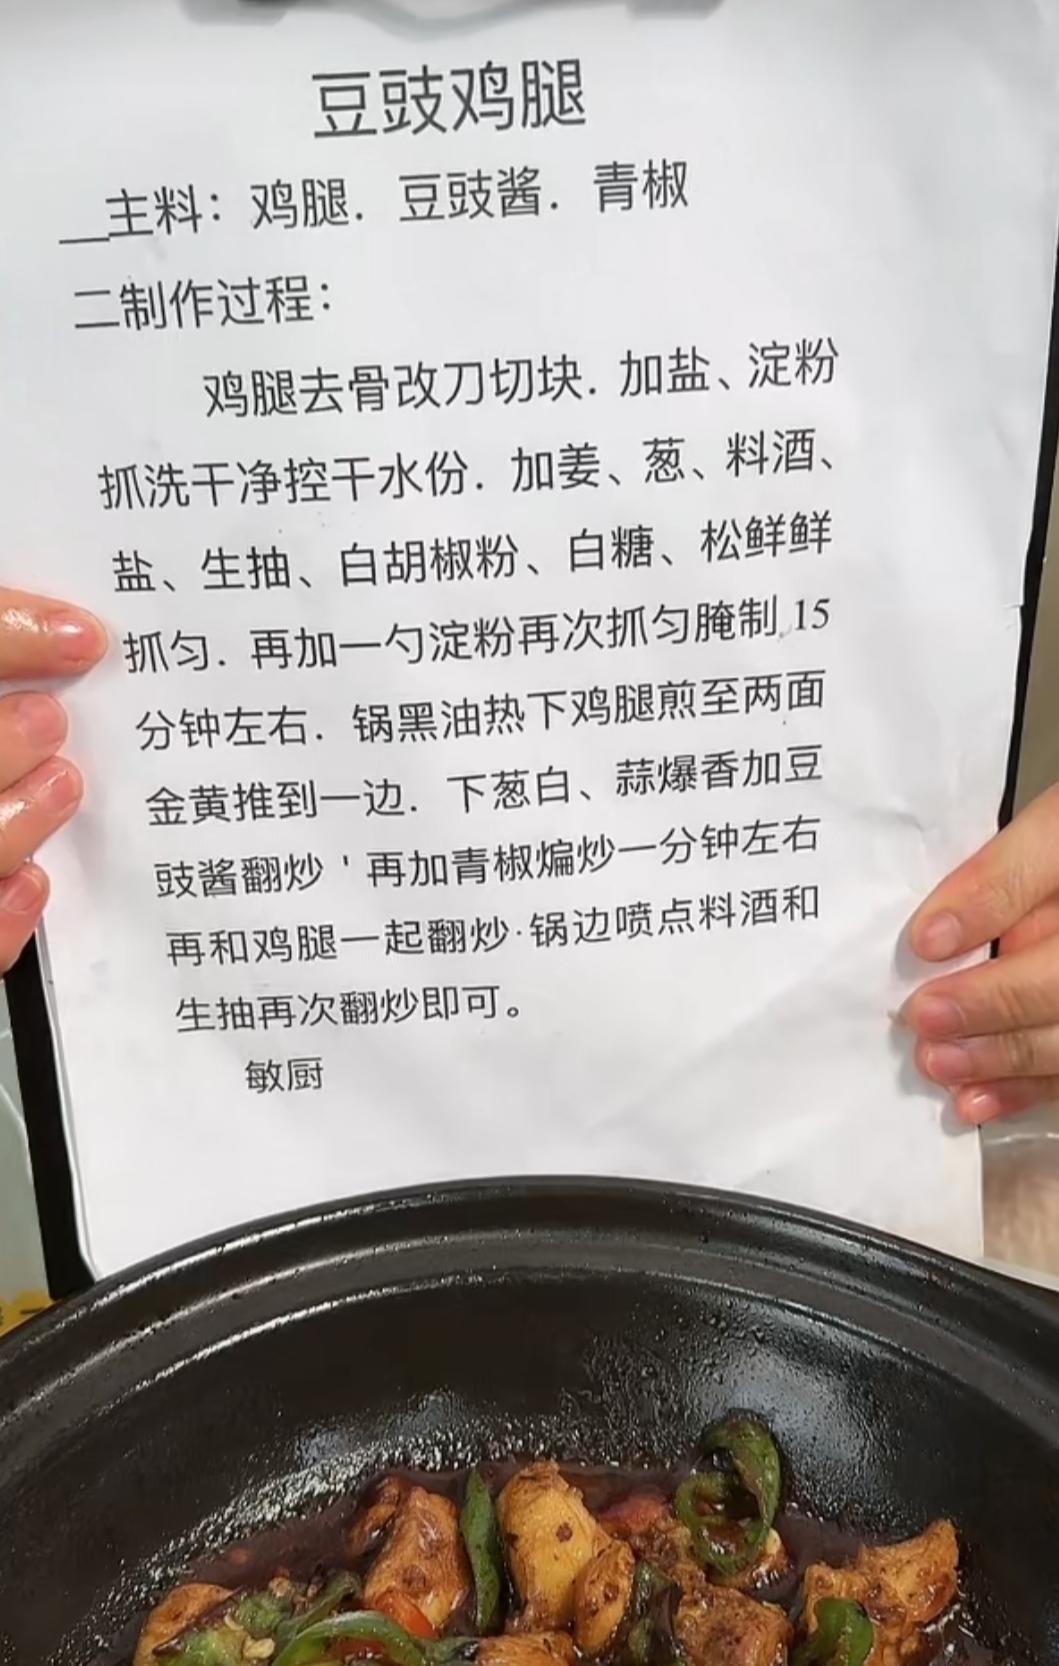 豆豉鸡腿
一主料：鸡腿．豆豉酱．青椒
二制作过程：
鸡腿去骨改刀切块．加盐、淀粉
抓洗干净控干水份．加姜、葱、料酒、
盐、生抽、白胡椒粉、白糖、松鲜鲜
抓匀．再加一勺淀粉再次抓匀腌制 15
分钟左右．锅黑油热下鸡腿煎至两面
金黄推到一边．下葱白、蒜爆香加豆
豉酱翻炒＇再加青椒煸炒一分钟左右
再和鸡腿一起翻炒·锅边喷点料酒和
生抽再次翻炒即可。
敏厨